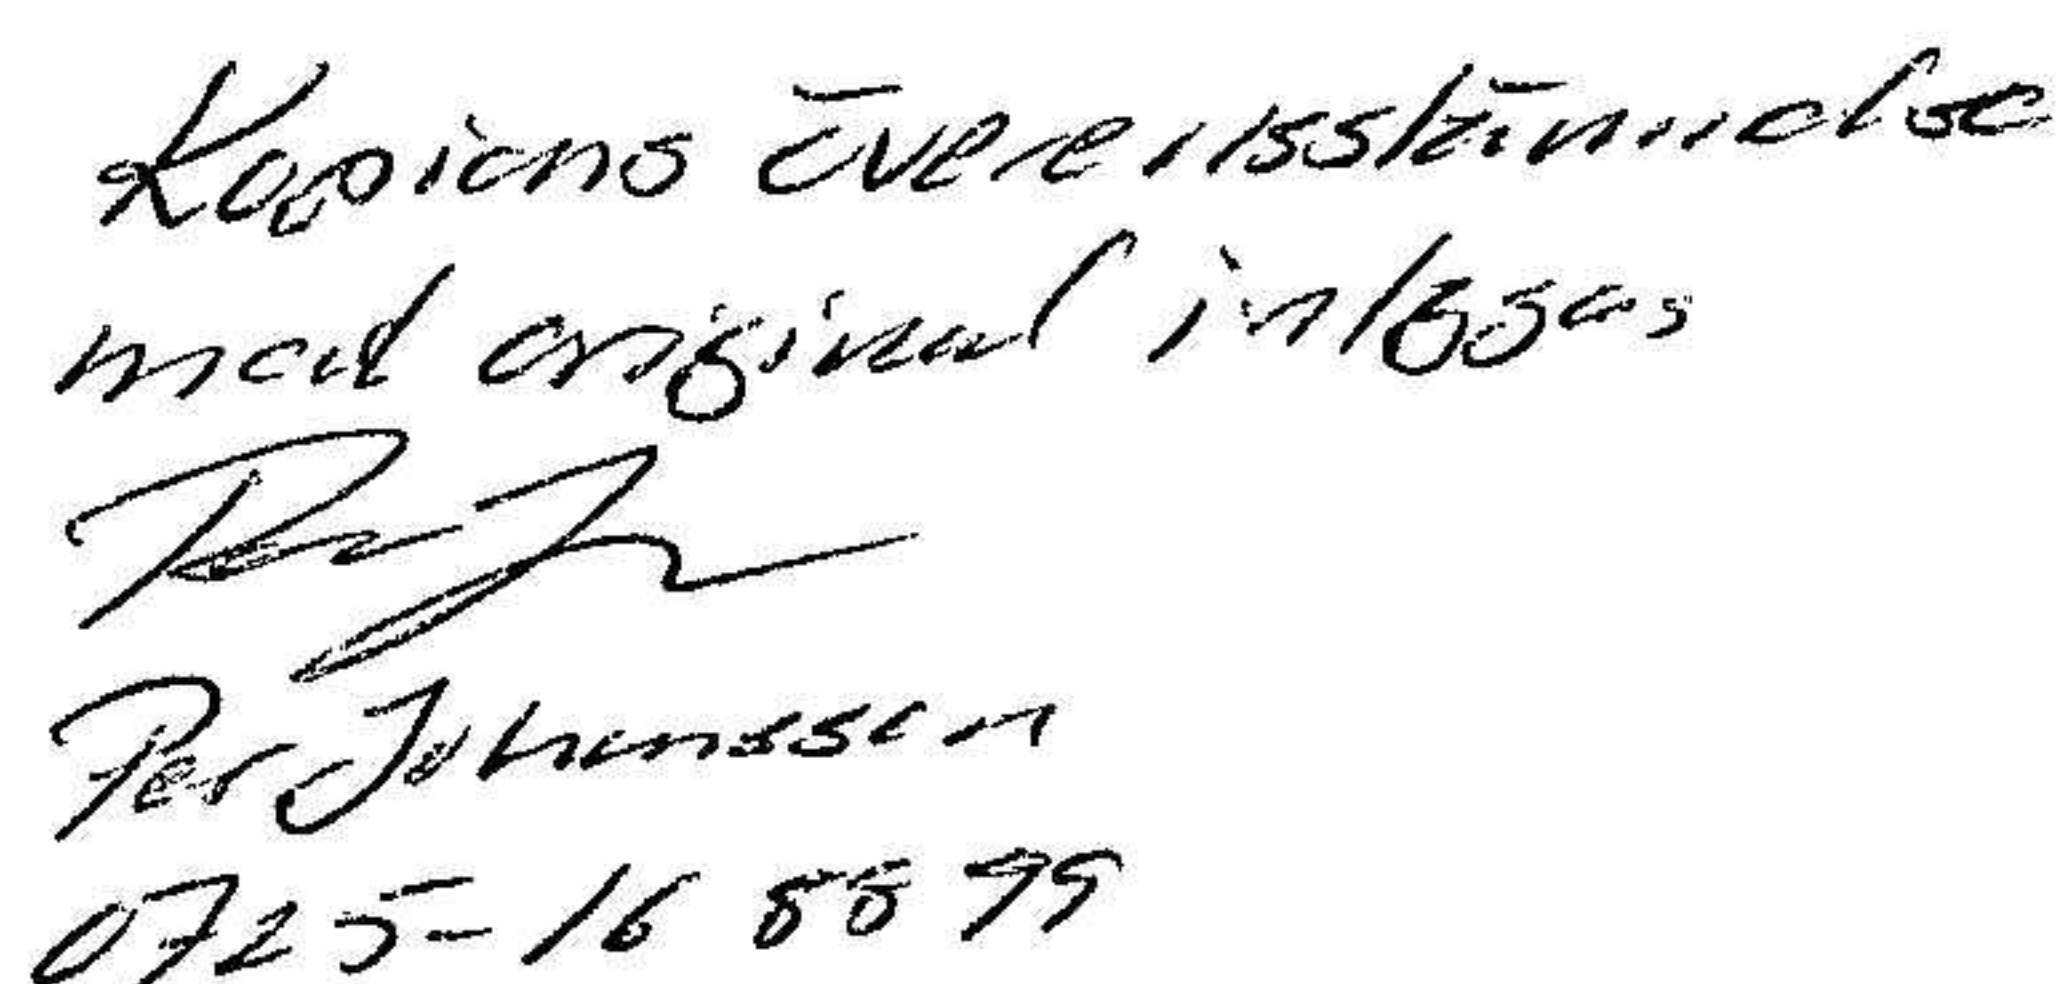 Kopians överensstämmelse
med original intygas
Per Johansson
0725-16 88 99